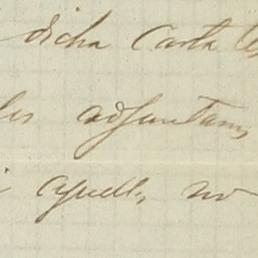 dicha Carta
les adjuntamos
aquello, no